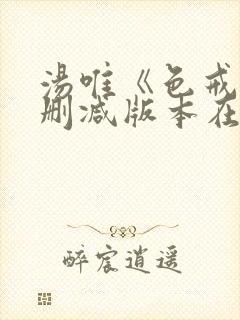 汤唯《色戒
删减版本在
醉宸逍遥